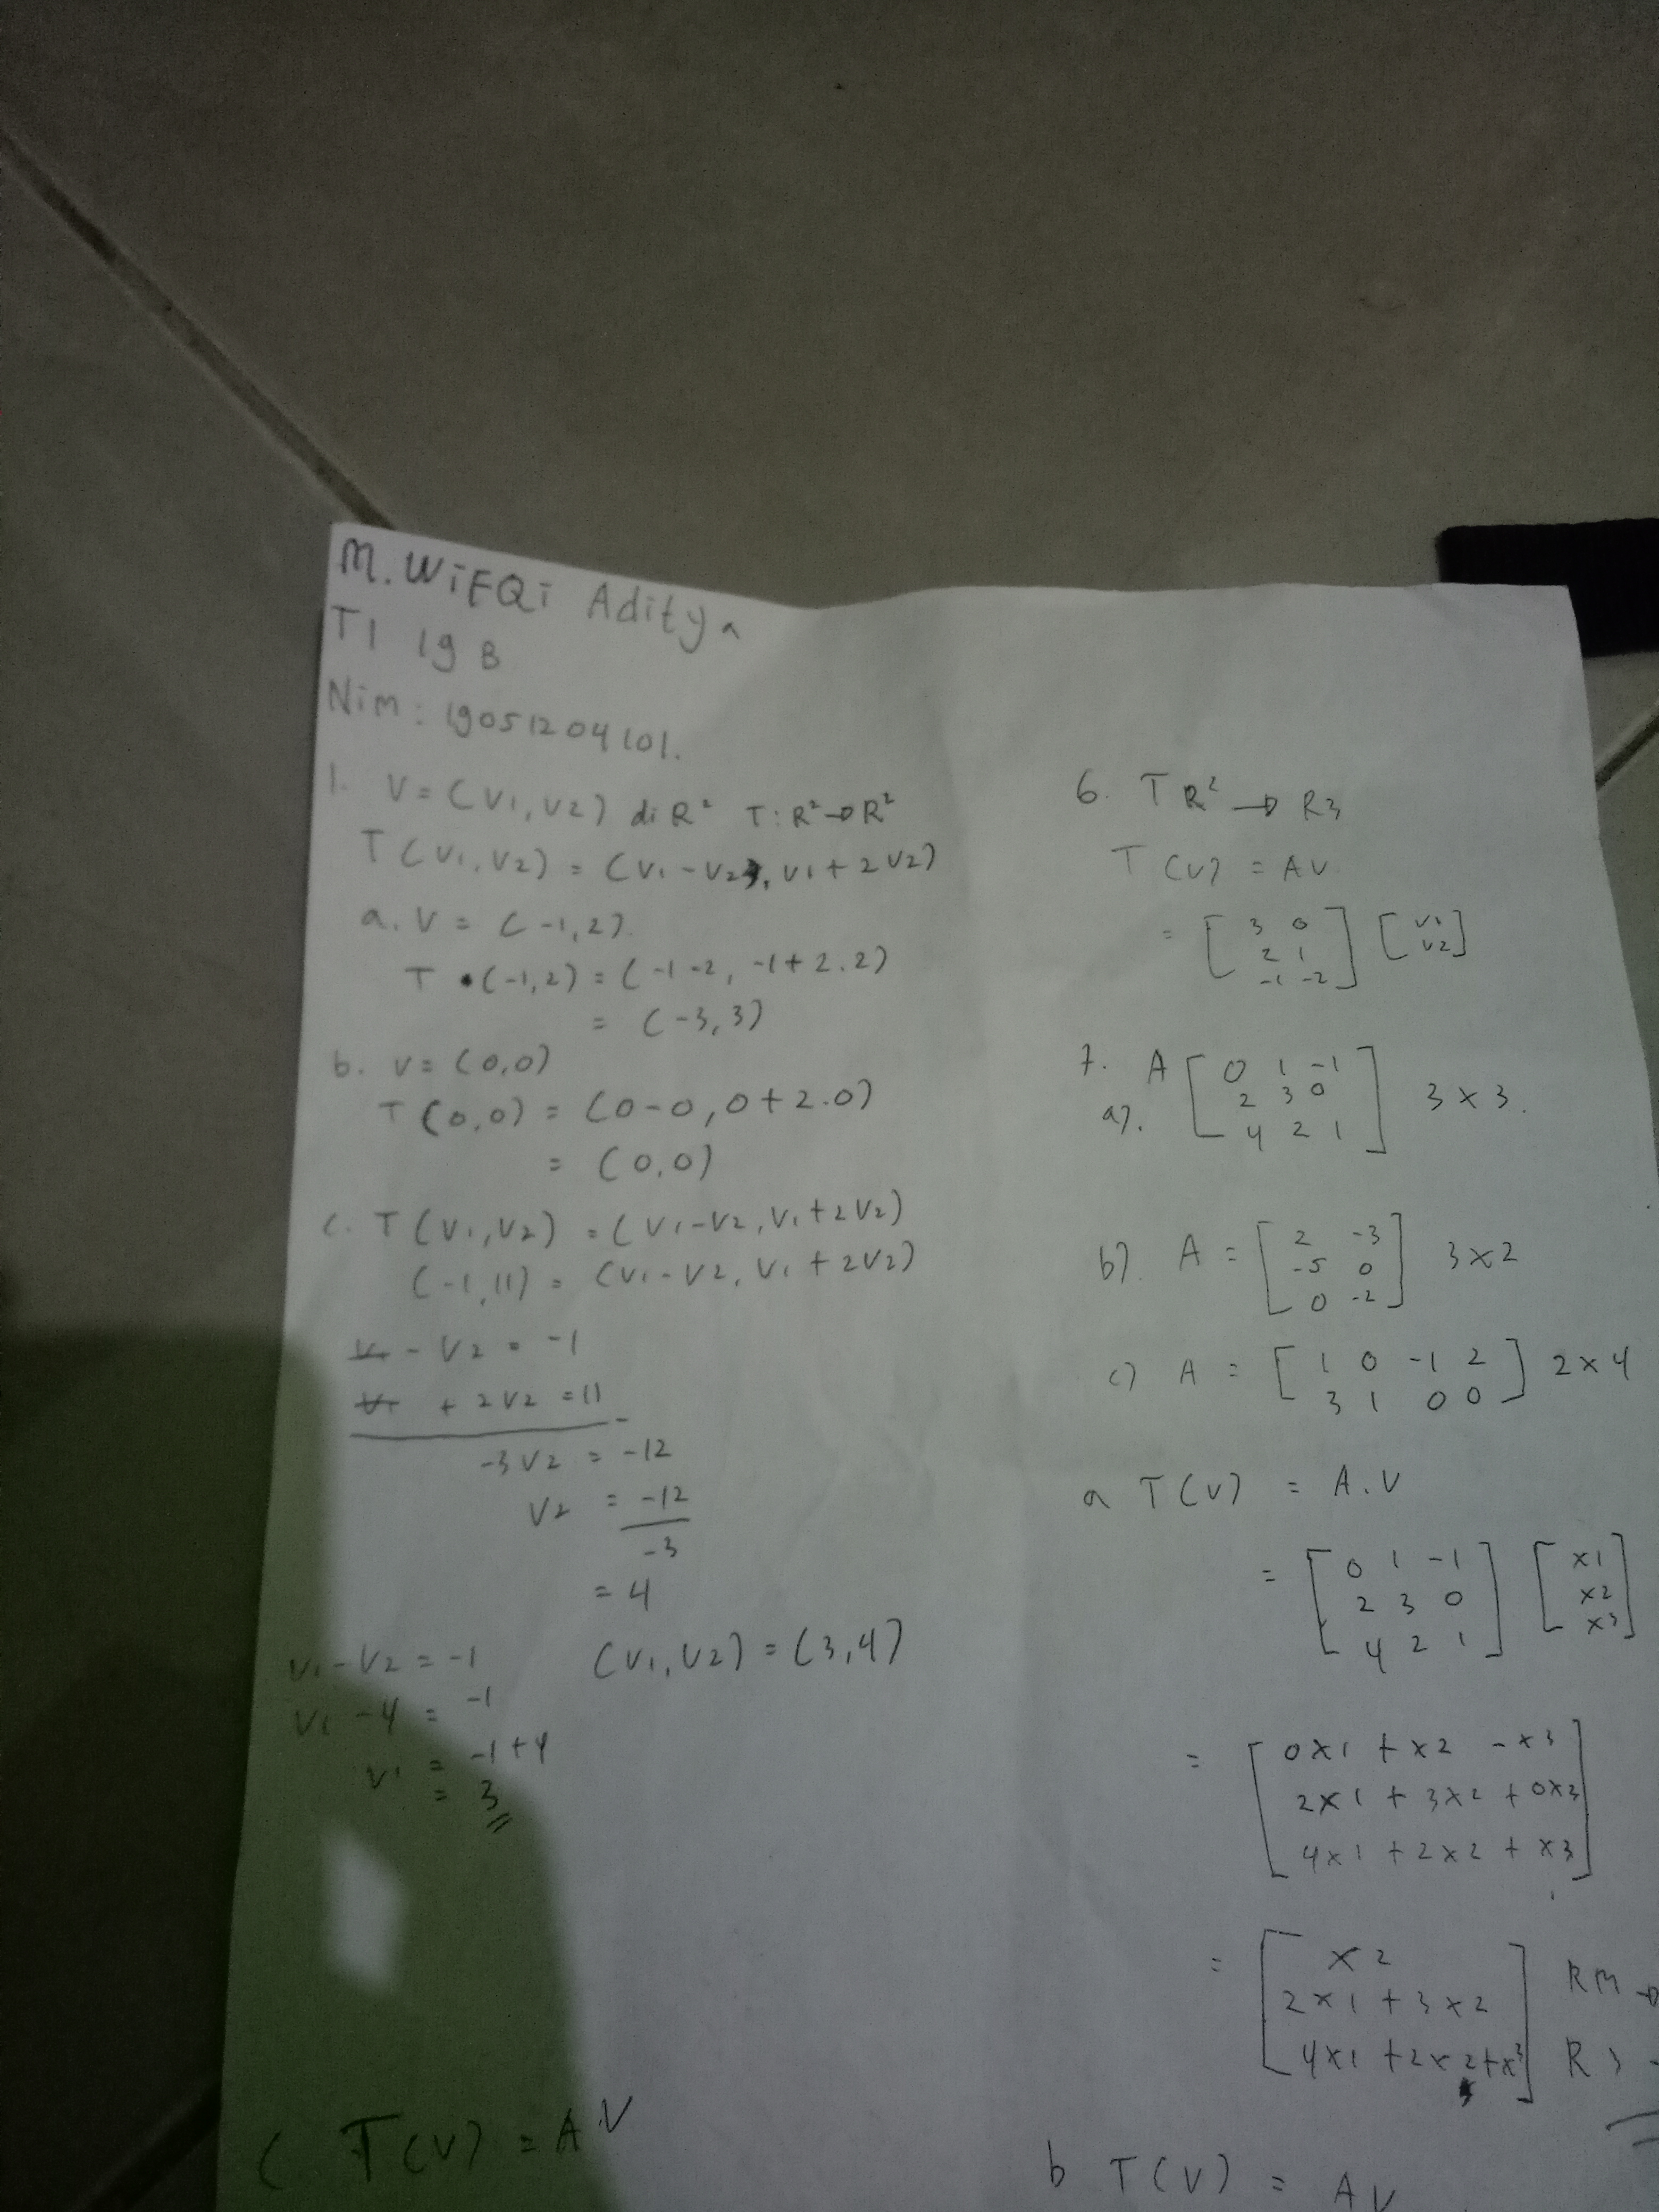 M. WiFQi Aditya
TI 19 B
Nim : 19051204101.
1. V = (V1, V2) di R² T : R² → R²
T (V1, V2) = (V1 - V2, V1 + 2 V2)
a. V = (-1, 2)
T (-1, 2) = (-1 -2, -1 + 2.2)
= (-3, 3)
b. V = (0,0)
T (0,0) = (0-0, 0+2.0)
= (0,0)
c. T (V1, V2) = (V1-V2, V1+2V2)
(-1, 11) = (V1-V2, V1 + 2V2)
V1 - V2 = -1
V1 + 2V2 = 11
-
-3V2 = -12
V2 = -12
-3
= 4
V1 - V2 = -1 (V1, V2) = (3,4)
V1 - 4 = -1
V1 = -1 + 4
= 3
C T(V) = AV
6. T R² → R3
T (V) = AV
= [ 3 0 ] [ V1 ]
2 1 V2
-1 -2
7. A [ 0 1 -1 ] 3 x 3.
a). 2 3 0
4 2 1
b) A = [ 2 -3 ] 3 x 2
-5 0
0 -2
c) A = [ 1 0 -1 2 ] 2 x 4
3 1 0 0
a T (V) = A . V
= [ 0 1 -1 ] [ x1 ]
2 3 0 x2
4 2 1 x3
= [ 0x1 + x2 - x3 ]
2x1 + 3x2 + 0x3
4x1 + 2x2 + x3
= [ x2 ] Rm →
2x1 + 3x2
4x1 + 2x2 + x3 R3
b T (V) = AV